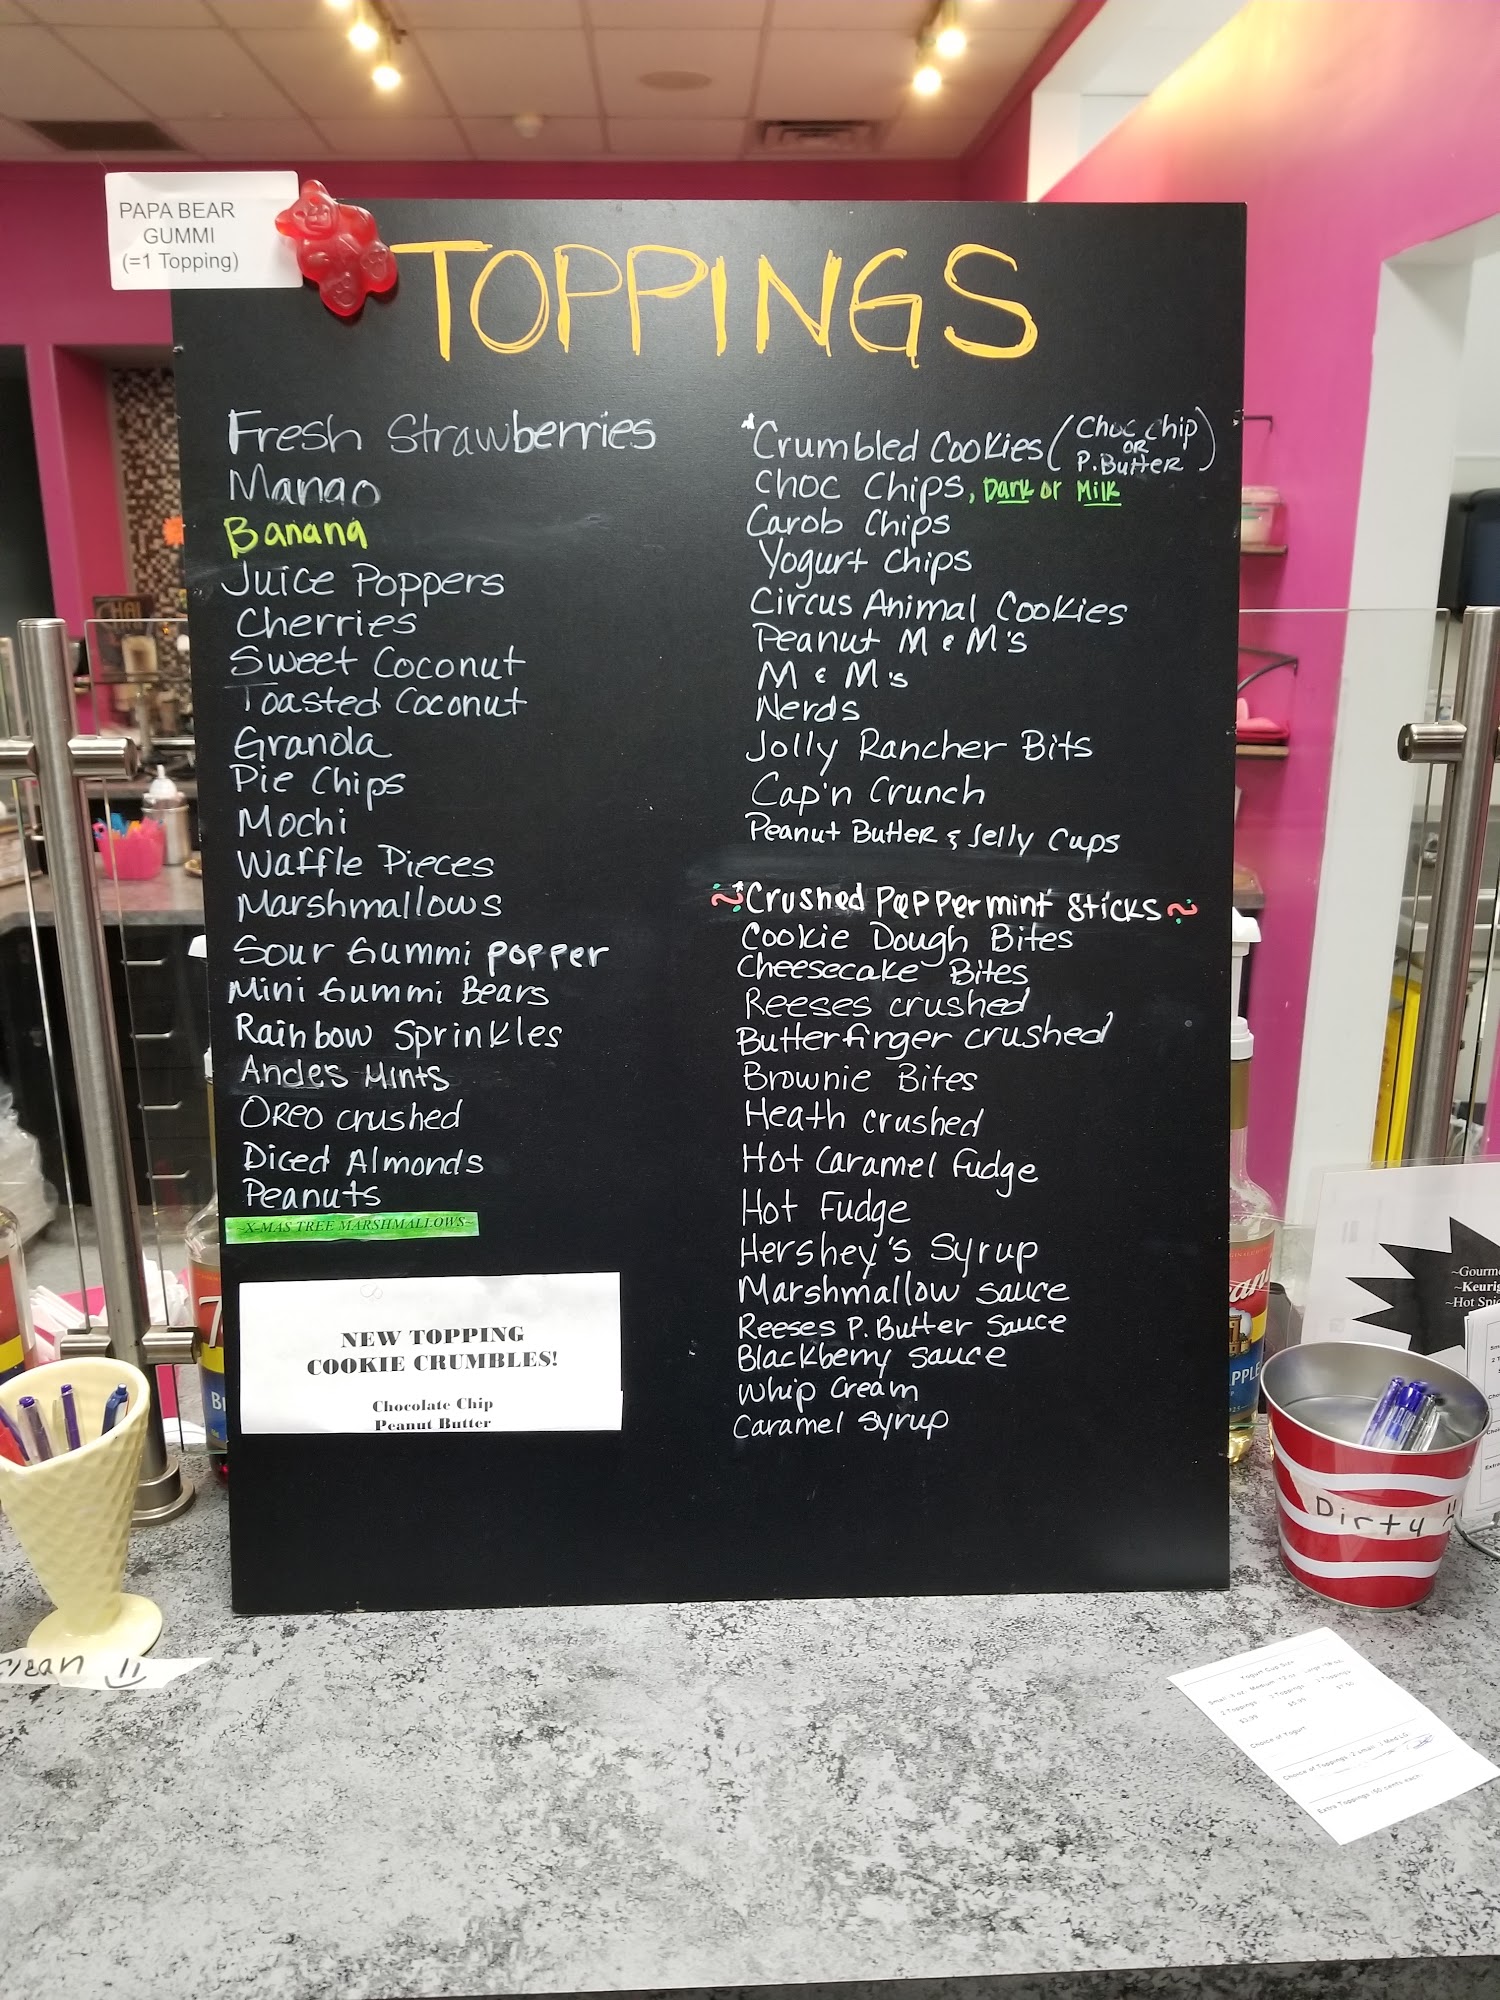 PAPA BEAR
GUMMI
(=1 Topping)
TOPPINGS
Fresh Strawberries
Mango
Banana
Juice Poppers
Cherries
Sweet Coconut
Toasted Coconut
Granola
Pie Chips
Mochi
Waffle Pieces
Marshmallows
Sour Gummi popper
Mini Gummi Bears
Rainbow Sprinkles
Andes Mints
Oreo crushed
Diced Almonds
Peanuts
~X-MAS TREE MARSHMALLOWS~
NEW TOPPING
COOKIE CRUMBLES!
Chocolate Chip
Peanut Butter
*Crumbled Cookies (Choc chip OR P.Butter)
Choc Chips, Dark or Milk
Carob Chips
Yogurt Chips
Circus Animal Cookies
Peanut M & M's
M & M's
Nerds
Jolly Rancher Bits
Cap'n Crunch
Peanut Butter & Jelly Cups
~Crushed Peppermint Sticks~
Cookie Dough Bites
Cheesecake Bites
Reeses crushed
Butterfinger crushed
Brownie Bites
Heath crushed
Hot Caramel Fudge
Hot Fudge
Hershey's Syrup
Marshmallow sauce
Reeses P. Butter Sauce
Blackberry sauce
Whip Cream
Caramel Syrup
CHAI
~Gourme
~Keurig
~Hot Spi
APPLE
Dirty
Clean
Yogurt Cup Size
2 Toppings 2 Toppings 2 Toppings
$3.99 $5.99
Choice of Yogurt
Choice of Toppings 2 small
Extra Toppings .60 cents each